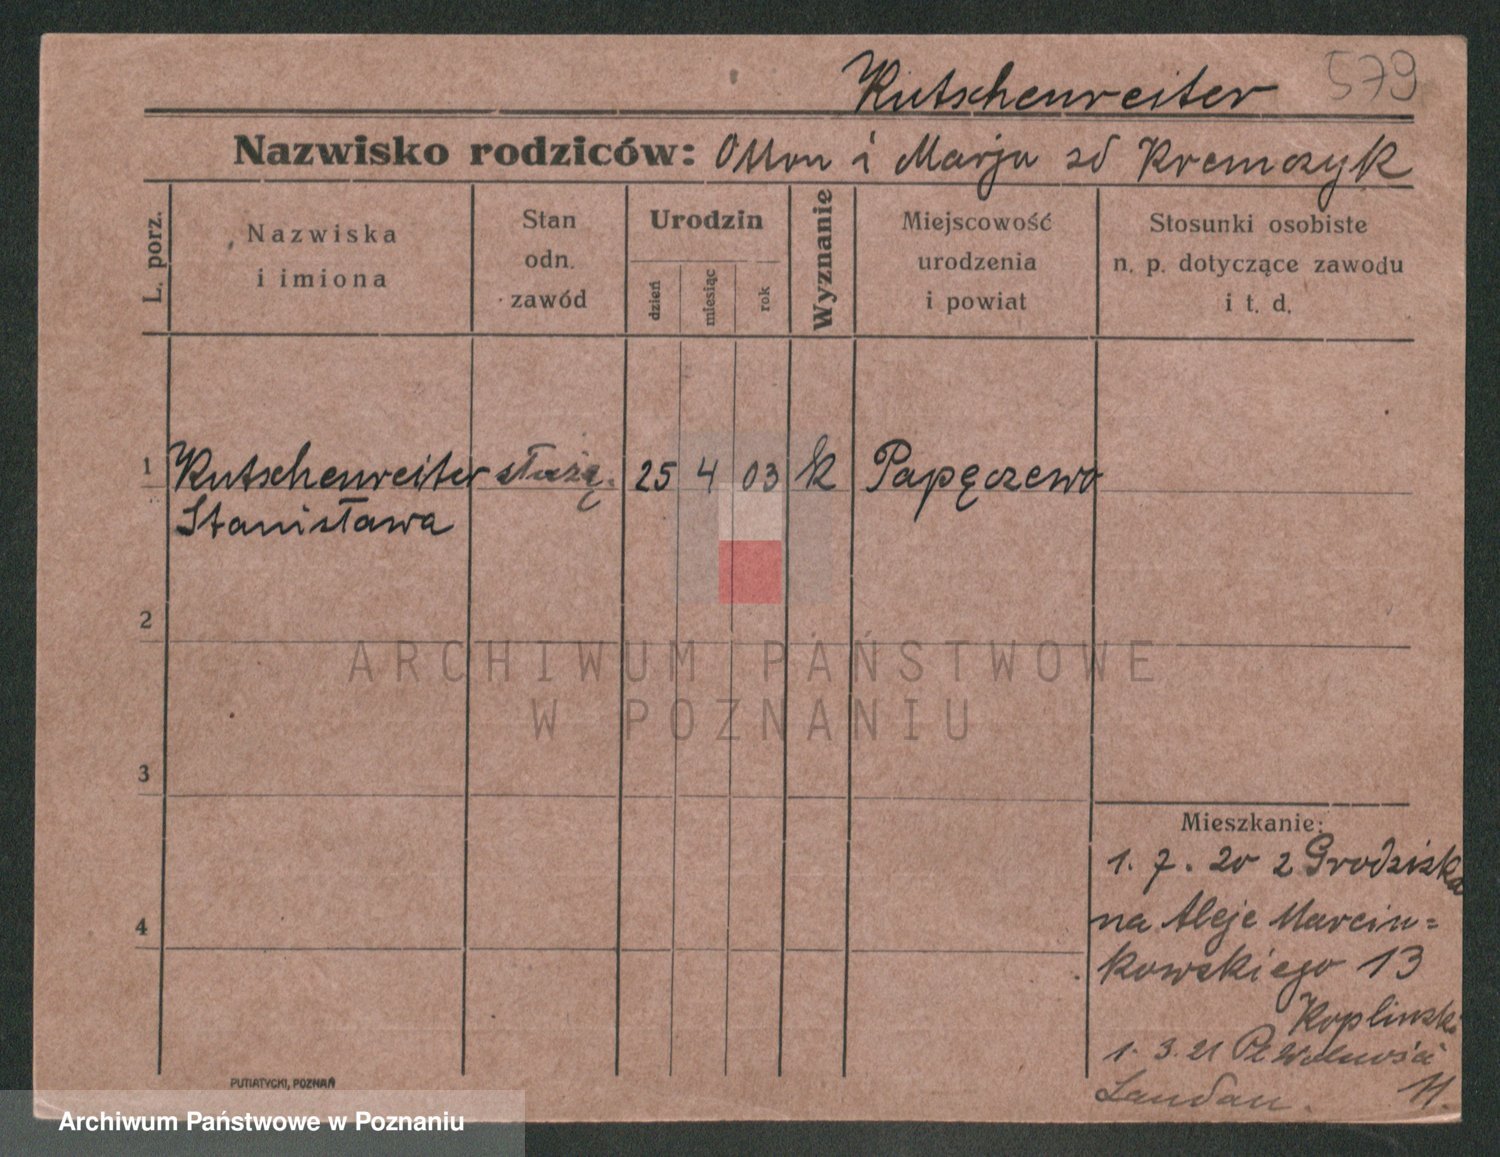 Kutschenreiter 579
Nazwisko rodziców: Otton i Marja zd Kremczyk
L. porz.
Nazwiska
i imiona
Stan
odn.
zawód
Urodzin
dzień
miesiąc
rok
Wyznanie
Miejscowość
urodzenia
i powiat
Stosunki osobiste
n. p. dotyczące zawodu
i t. d.
1 Kutschenreiter służą. 25 4 03 k Papęczewo
Stanisława
2
ARCHIWUM PAŃSTWOWE
W POZNANIU
3
Mieszkanie:
1. 7. 20 z Grodziska
4
na Aleje Marcin=
kowskiego 13
Koplinski
1. 3. 21 Pl Wolności
Landau. 11.
PUTIATYCKI, POZNAŃ
Archiwum Państwowe w Poznaniu